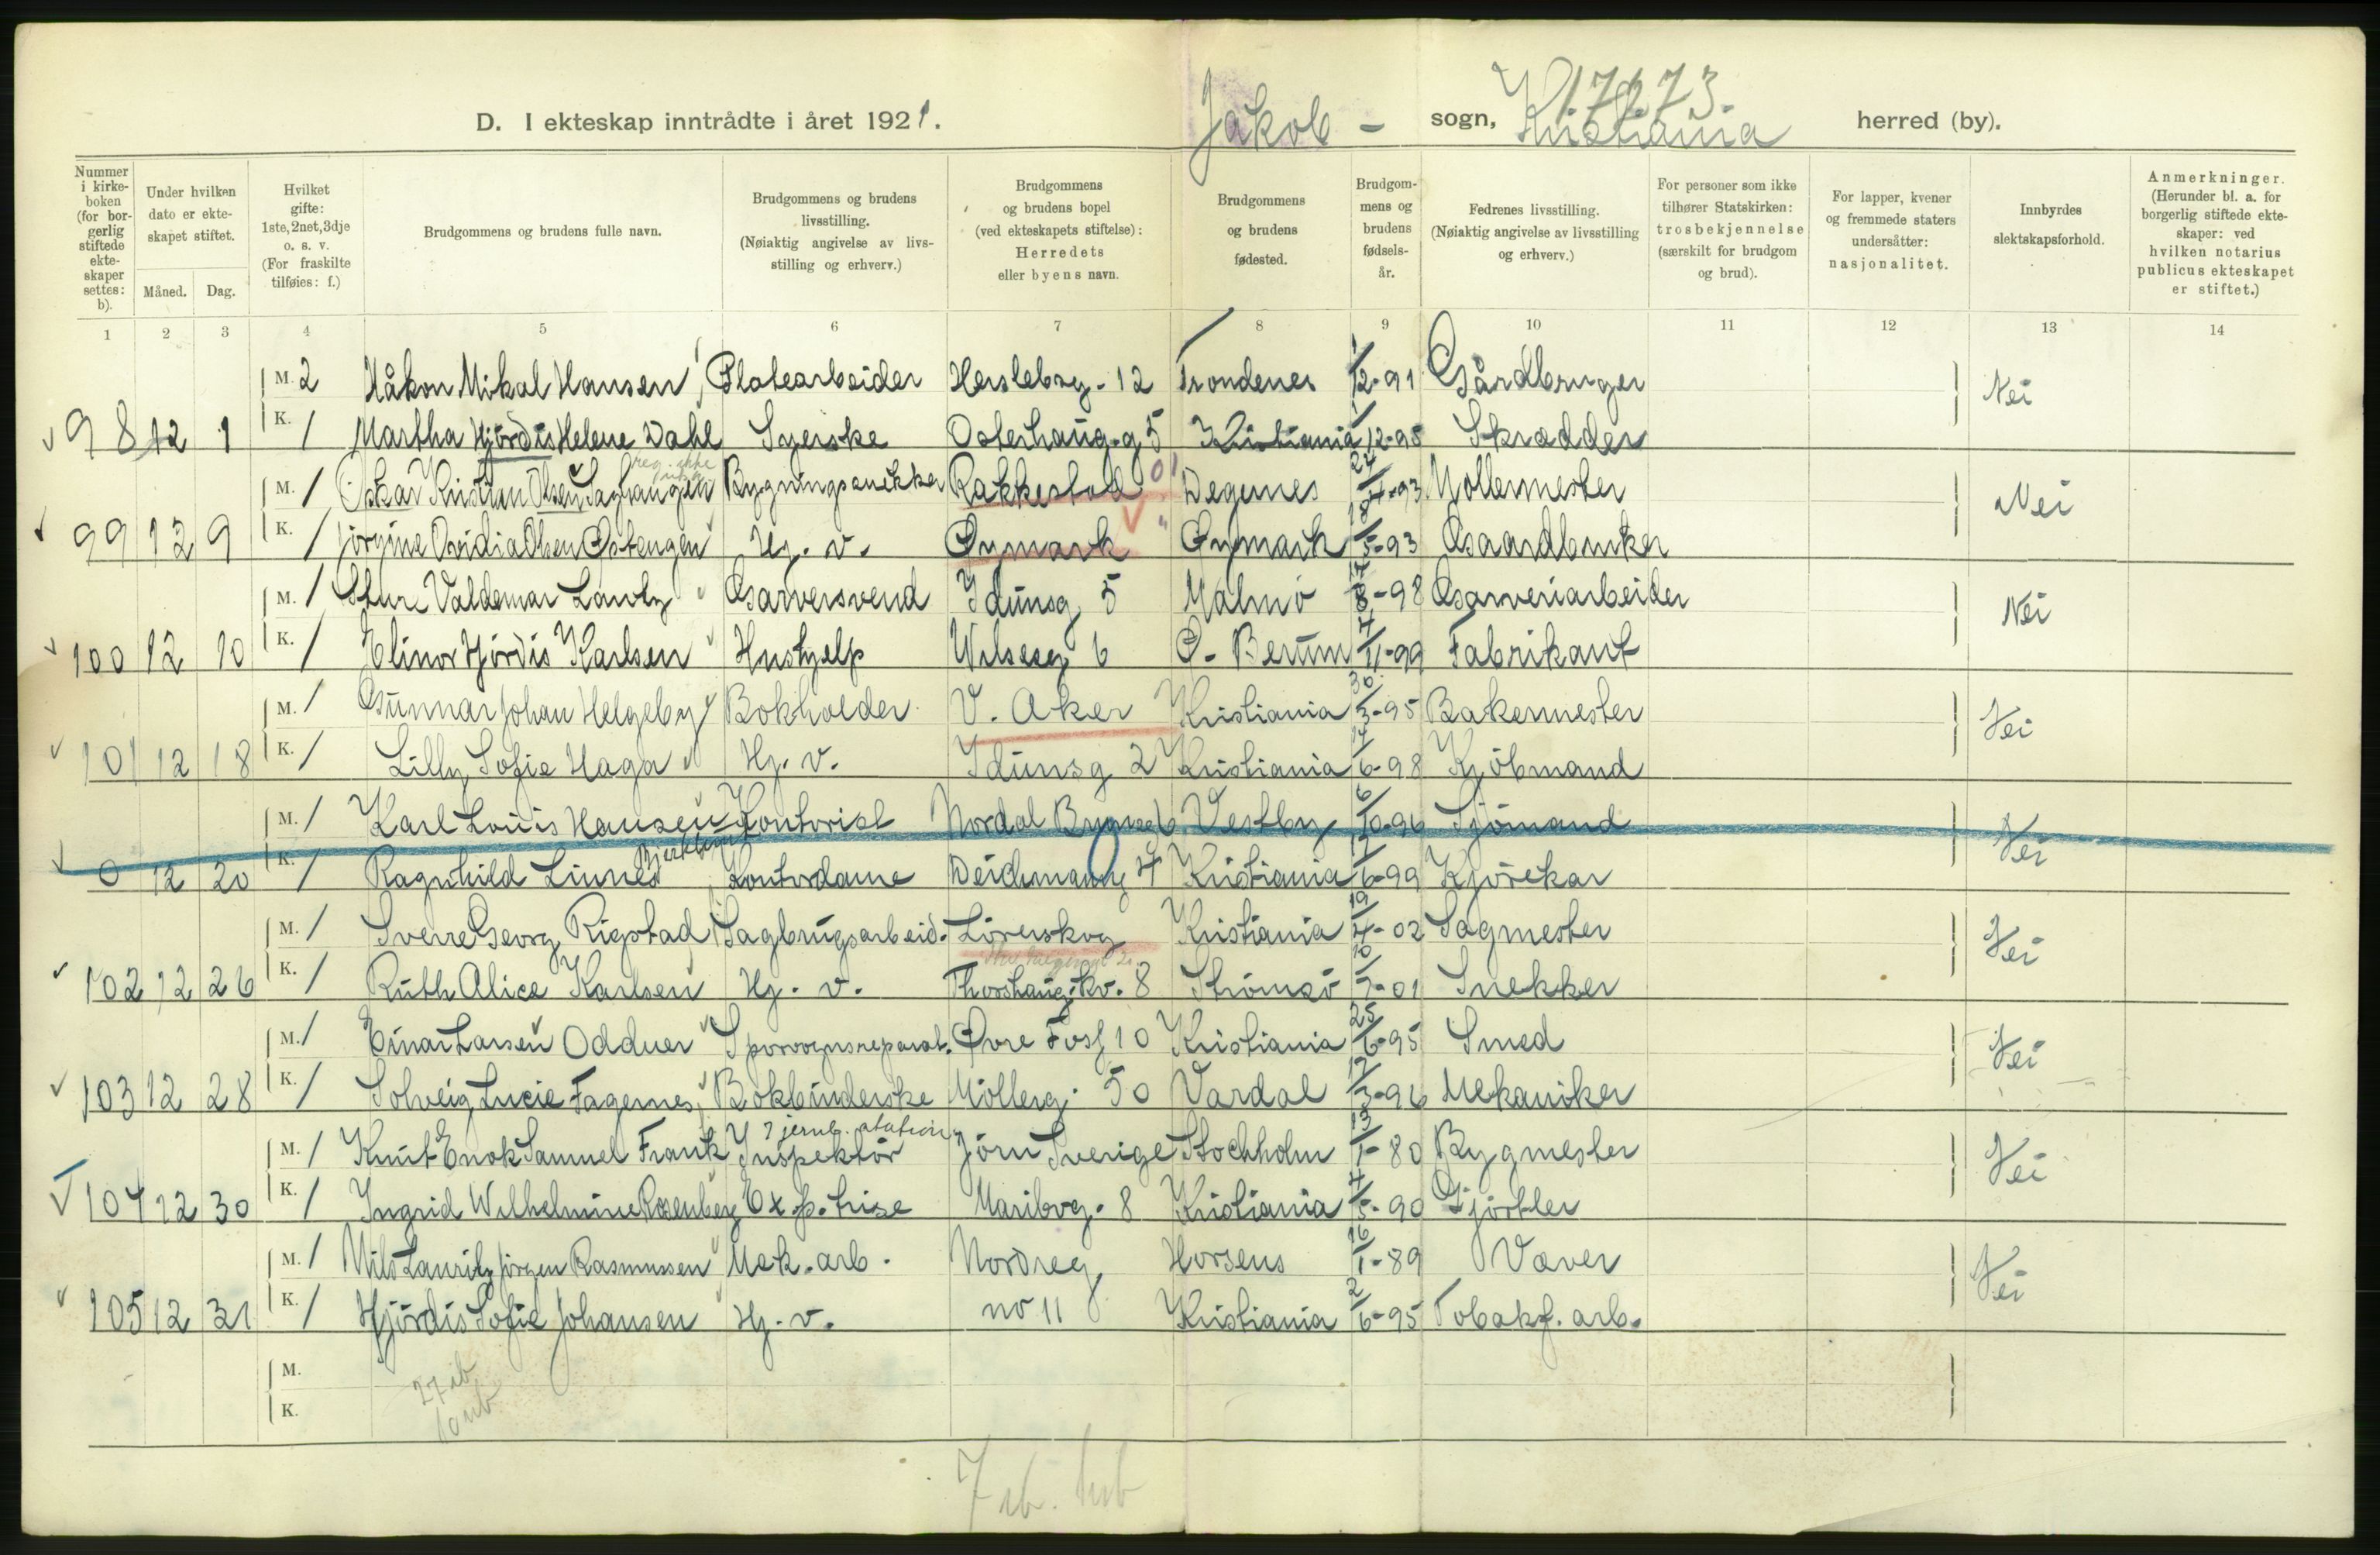 17273.
D. I ekteskap inntrådte i året 1921. Jakob – sogn, Kristiania herred (by).
Nummer i kirkeboken (for borgerlig stiftede ekteskaper settes: b).
Under hvilken dato er ekteskapet stiftet.
Måned. Dag.
Hvilket gifte: 1ste, 2net, 3dje o. s. v. (For fraskilte tilføies: f.)
Brudgommens og brudens fulle navn.
Brudgommens og brudens livsstilling. (Nøiaktig angivelse av livsstilling og erhverv.)
Brudgommens og brudens bopel (ved ekteskapets stiftelse): Herredets eller byens navn.
Brudgommens og brudens fødested.
Brudgommens og brudens fødselsår.
Fedrenes livsstilling. (Nøiaktig angivelse av livsstilling og erhverv.)
For personer som ikke tilhører Statskirken: trosbekjennelse (særskilt for brudgom og brud).
For lapper, kvener og fremmede staters undersåtter: nasjonalitet.
Innbyrdes slektskapsforhold.
Anmerkninger. (Herunder bl. a. for borgerlig stiftede ekteskaper: ved hvilken notarius publicus ekteskapet er stiftet.)
1 2 3 4 5 6 7 8 9 10 11 12 13 14
M. 2 Håkon Mikal Hansen Platearbeider Herslebsg. 12 Trondenes 1/12-91 Gårdbruger Nei
98 12 1 K. 1 Martha Hjördis Helene Dahl Syerske Osterhaug.g 5 Kristiania 1/12-95 Skrædder
M. 1 Oskar Kristian Olsen Saghaugen Bygningssnekker Rakkestad Degernes 24/4-93 Möllermester Nei
99 12 9 K. 1 Jörgine Ovidia Olsen Östengen Hg. v. Öymark Öymark 18/5-93 Gaardbruker
M. 1 Sture Valdemar Garversvend Idunsg. 5 Malmö /8-98 Garveriarbeider Nei
100 12 10 K. 1 Elinor Hjördis Karlsen Hushjelp Wilsesg 6 Ö. Berum 4/11-99 Fabrikant
M. 1 Gunnar Johan Helgeby Bokholder V. Aker Kristiania 30/3-95 Bakermester Nei
101 12 18 K. 1 Lilly Sofie Haga Hg. v. Idunsg 2 Kristiania 14/6-98 Kjöbmand
M. 1 Karl Louis Hansen Kontorist Nordal Brunsg Vestby 6/10-96 Sjömand Nei
0 12 20 K. 1 Ragnhild Linnes Kontordame Deichmansg 4 Kristiania 12/6-99 Kjörekar
M. 1 Sverre Georg Rigstad Sagbrugsarbeid. Lörenskog Kristiania 19/4-02 Sagmester Nei
102 12 26 K. 1 Ruth Alice Karlsen Hg. v. Thorshaug.kv. 8 Strömsö 10/7-01 Snekker
M. 1 Einar Larsen Odduer Sporvognsreparat. Övre Fosg 10 Kristiania 25/6-95 Smed Nei
103 12 28 K. 1 Solveig Lucie Fagernes Bokbinderske Möllerg. 50 Vardal 17/3-96 Mekaniker
I jernb. station.
M. 1 Knut Enok Samuel Frank Inspektör Jörn Sverige Stockholm 13/1-80 Bygmester Nei
104 12 30 K. 1 Ingrid Wilhelmine Rosenberg Exp. trise Maribog. 8 Kristiania 4/5-90 Gjörtler
M. 1 Nils Lauritz Jörgen Rasmussen Mek. arb. Nordreg. Horsens 16/1-89 Væver Nei
105 12 31 K. 1 Hjördis Sofie Johansen Hg. v. no 11 Kristiania 2/6-95 Tobakf. arb.
M.
K.
27 ib
10 ub
7 ib. ub